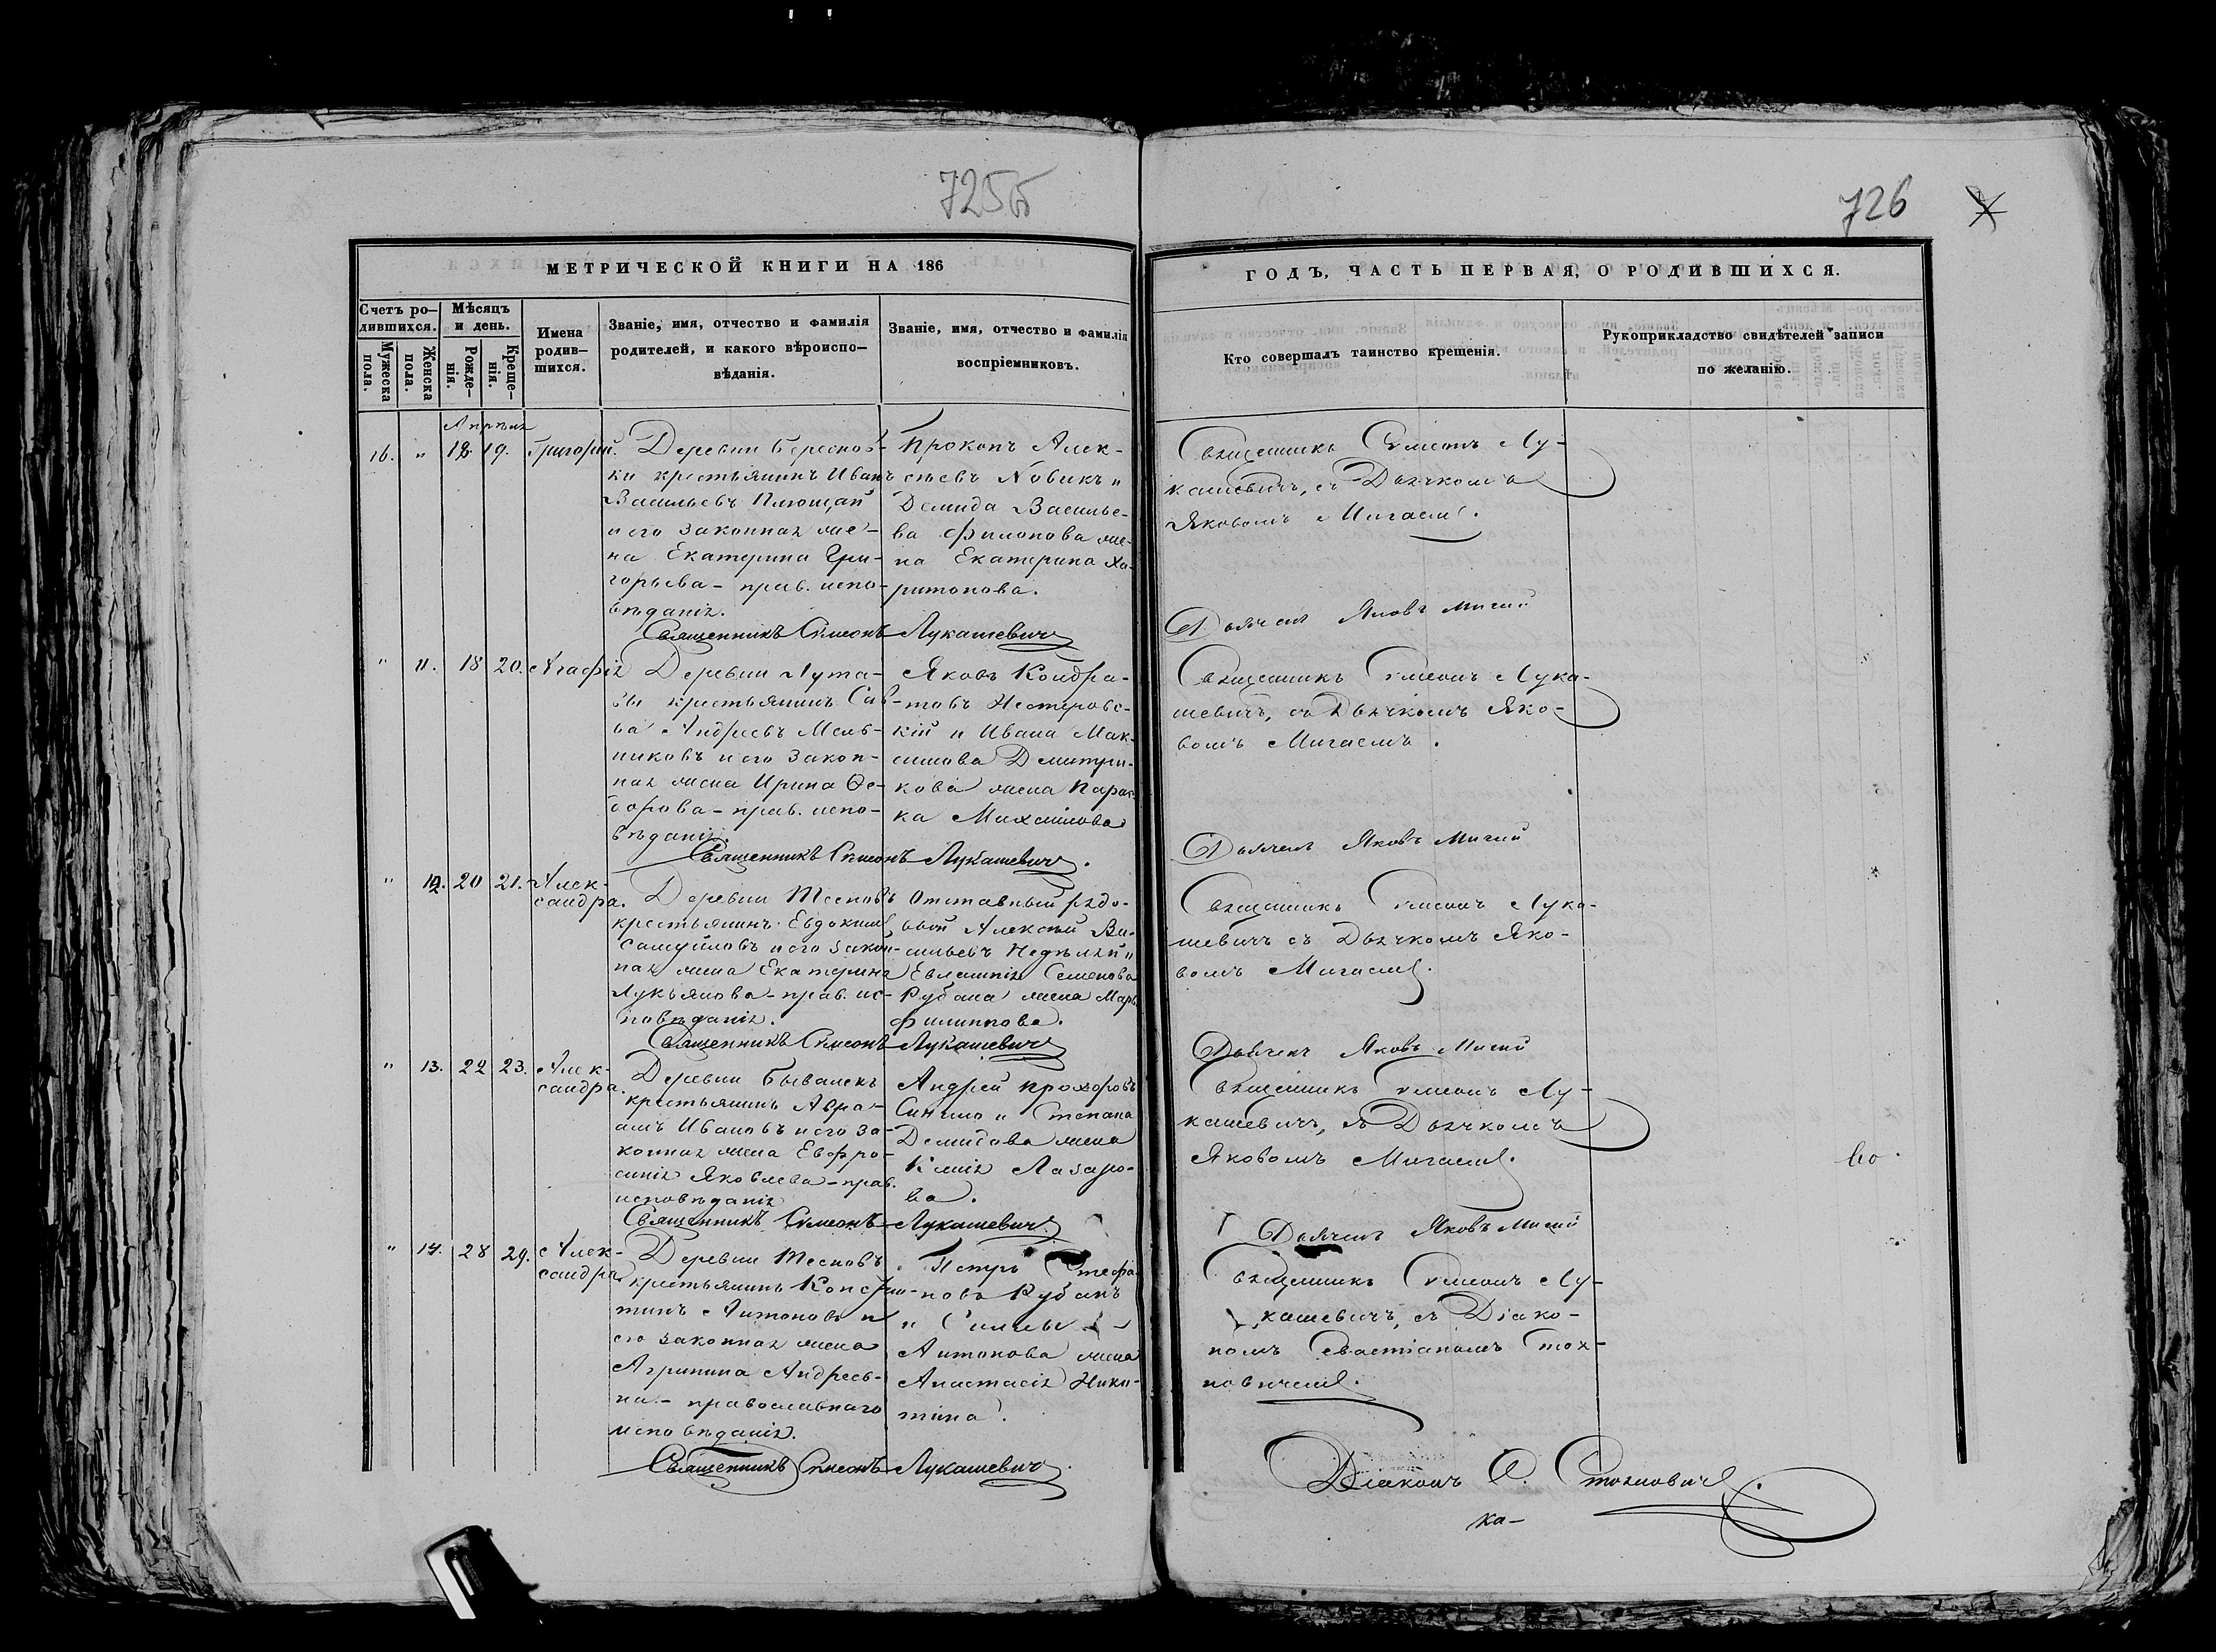 725об
726
МЕТРИЧЕСКОЙ КНИГИ НА 186
ГОДЪ, ЧАСТЬ ПЕРВАЯ, О РОДИВШИХСЯ.
Счетъ ро-
дившихся.
Мужеска
пола.
Женска
пола.
Мѣсяцъ
и день.
Рожде-
нія.
Креще-
нія.
Имена
родив-
шихся.
Званіе, имя, отчество и фамилія
родителей, и какого вѣроиспо-
вѣданія.
Званіе, имя, отчество и фамилія
воспріемниковъ.
Кто совершалъ таинство крещенія.
Рукоприкладство свидѣтелей записи
по желанію.
Апрѣля
16. " 18. 19. Григорій.
Деревни Береснов-
ки крестьянинъ Иванъ
Васильевъ Плющай
и его законная же-
на Екатерина Гри-
горьева - прав. испо-
вѣданія.
Прокопъ Алек-
сѣевъ Новикъ и
Демида Василье-
ва Филонова же-
на Екатерина Ха-
ритонова.
Священникъ Сѵмеонъ Лукашевичъ
Священникъ Сѵмеонъ Лу-
кашевичъ, съ Дьячкомъ
Яковомъ Мигаемъ.
Дьячекъ Яковъ Мигай
" 11. 18 20. Агафія
Деревни Лута-
вы крестьянинъ Сав-
ва Андреевъ Мель-
никовъ и его закон-
ная жена Ирина Ѳе-
дорова - прав. испо-
вѣданія.
Яковъ Кондра-
товъ Нестеровс-
кій и Ивана Мак-
симова Дмитри-
кова жена Парас-
ка Михайлова
Священникъ Сѵмеонъ Лукашевичъ.
Священникъ Сѵмеонъ Лука-
шевичъ, съ Дьячкомъ Яко-
вомъ Мигаемъ.
Дьячекъ Яковъ Мигай
" 12. 20 21. Алек-
сандра.
Деревни Тесновъ
крестьянинъ Евдокимъ
Самуйловъ и его закон-
ная жена Екатерина
Лукьянова - прав. ис-
повѣданія.
Отставный рядо-
вой Алексѣй Ва-
сильевъ Недѣляй и
Евлампія Семенова
Рубана жена Марь
Филиппова.
Священникъ Сѵмеонъ Лукашевичъ
Священникъ Сѵмеонъ Лука-
шевичъ съ Дьячкомъ Яко-
вомъ Мигаемъ.
Дьячекъ Яковъ Мигай
" 13. 22 23. Алек-
сандра.
Деревни Бывалекъ
крестьянинъ Авра-
амъ Ивановъ и его за-
конная жена Евфро-
синія Яковлева - прав.
исповѣданія
Андрей Прохоровъ
Синило и Степана
Демидова жена
Ксенія Лазаре-
ва.
Священникъ Сѵмеонъ Лукашевичъ
Священникъ Сѵмеонъ Лу-
кашевичъ, съ Дьячкомъ
Яковомъ Мигаемъ.
Дьячекъ Яковъ Мигай
" 14. 28 29. Алек-
сандра
Деревни Тесновъ
крестьянинъ Констан-
тинъ Антоновъ и
его законная жена
Агрипина Андреев-
на - православнаго
исповѣданія.
Петръ Стефа-
новъ Рубанъ
и
Антонова жена
Анастасія Ники-
тина.
Священникъ Сѵмеонъ Лукашевичъ.
Священникъ Сѵмеонъ Лу-
кашевичъ, съ Діако-
номъ Севастіаномъ Стох-
новичемъ.
Діаконъ С. Стохновичъ.
ка-